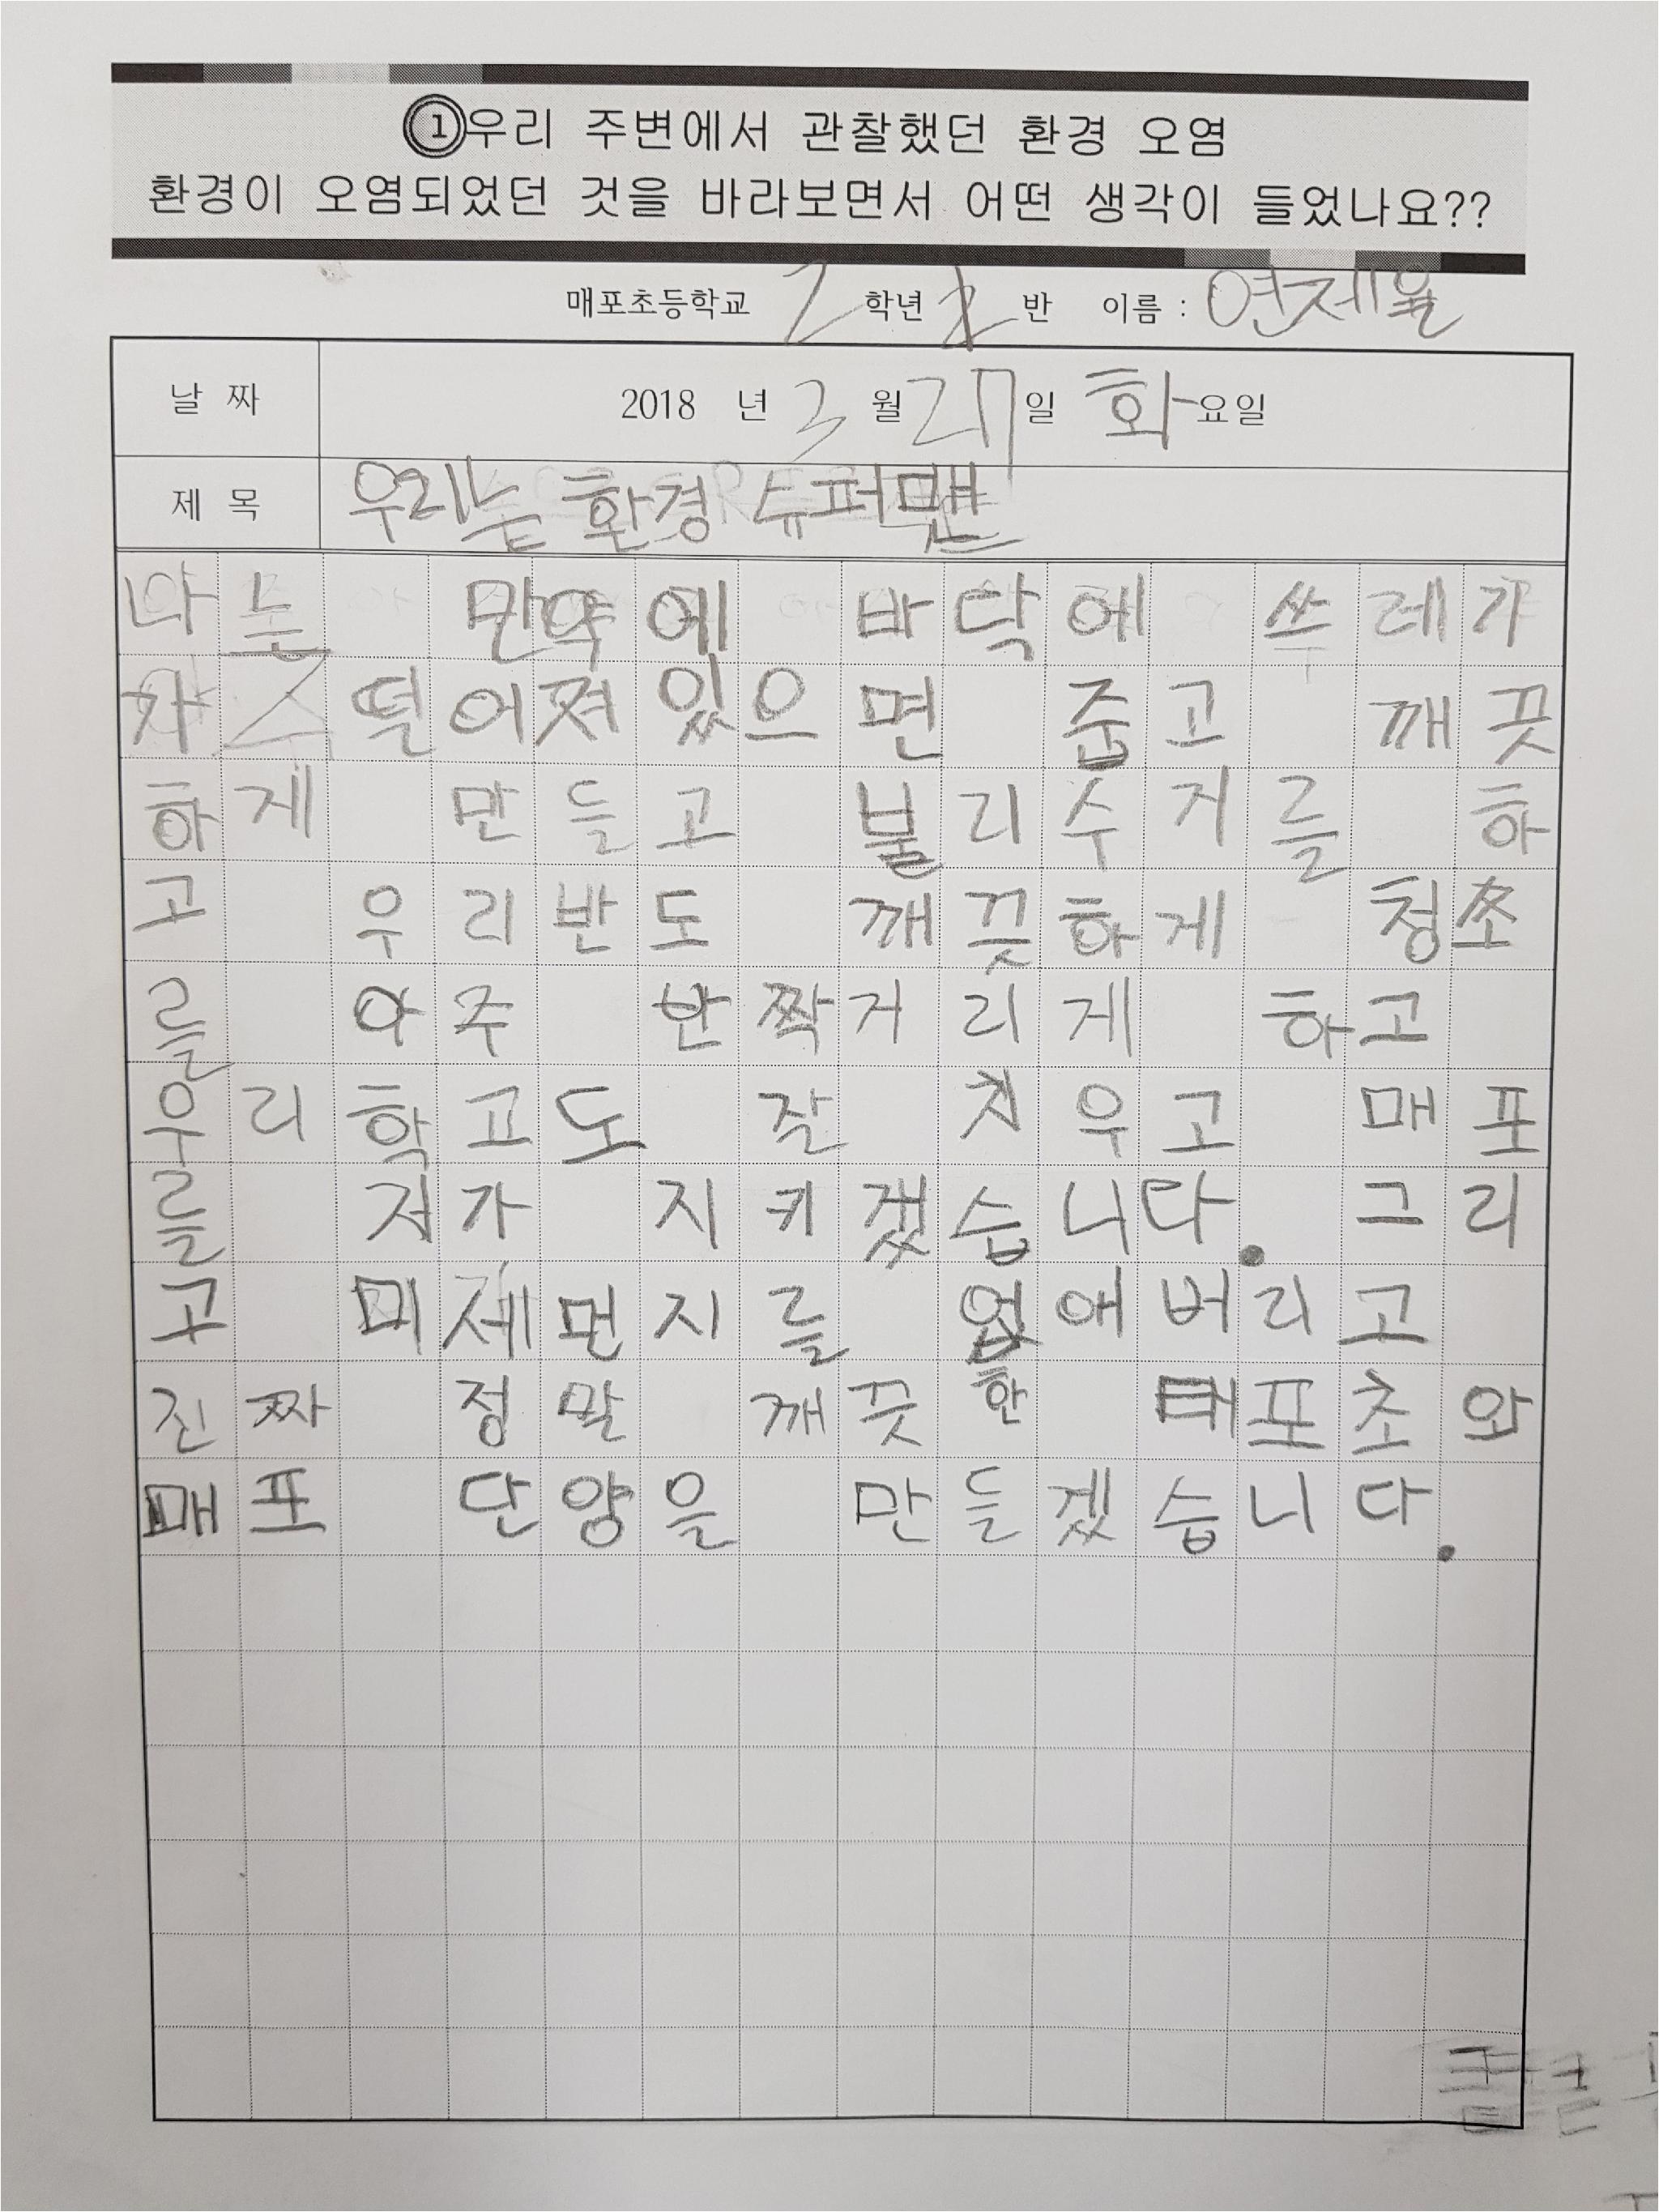 ①우리 주변에서 관찰했던 환경 오염
환경이 오염되었던 것을 바라보면서 어떤 생각이 들었나요??
매포초등학교 2 학년 2 반 이름 : 연제율
날 짜 2018 년 3 월 27 일 화 요일
제 목 우리는 환경 슈퍼맨
나는 만약에 바닥에 쓰레가
떨어져 있으면 줍고 깨끗
하게 만들고 불리수거를 하
고 우리반도 깨끗하게 청초
를 아주 반짝거리게 하고
우리학교도 잘 치우고 매포
를 저가 지키겠습니다. 그리
고 미제먼지를 없애버리고
진짜 정말 깨끗한 매포초와
매포 단양을 만들겠습니다.